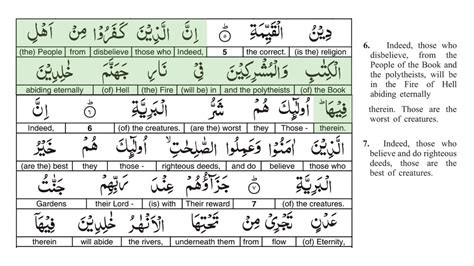 دِيْنُ الْقَيِّمَةِ ۝٥ اِنَّ الَّذِيْنَ كَفَرُوْا مِنْ اَهْلِ
(the) People | from | disbelieve | those who | Indeed, | 5 | the correct. | (is the) religion
الْكِتٰبِ وَالْمُشْرِكِيْنَ فِيْ نَارِ جَهَنَّمَ خٰلِدِيْنَ
abiding eternally | (of) Hell | (the) Fire | (will be) in | and the polytheists | (of) the Book
فِيْهَا ؕ اُولٰٓئِكَ هُمْ شَرُّ الْبَرِيَّةِ ۝٦ اِنَّ
Indeed, | 6 | (of) the creatures. | (are the) worst | they | Those - | therein.
الَّذِيْنَ اٰمَنُوْا وَعَمِلُوا الصّٰلِحٰتِ ۙ اُولٰٓئِكَ هُمْ خَيْرُ
(are the) best | they | those - | righteous deeds, | and do | believe | those who
الْبَرِيَّةِ ۝٧ جَزَآؤُهُمْ عِنْدَ رَبِّهِمْ جَنّٰتُ
Gardens | their Lord - | (is) with | Their reward | 7 | (of) the creatures.
عَدْنٍ تَجْرِيْ مِنْ تَحْتِهَا الْاَنْهٰرُ خٰلِدِيْنَ فِيْهَاۤ
therein | will abide | the rivers, | underneath them | from | flow | (of) Eternity,
6. Indeed, those who
disbelieve, from the
People of the Book and
the polytheists, will be
in the Fire of Hell
abiding eternally
therein. Those are the
worst of creatures.
7. Indeed, those who
believe and do righteous
deeds, those are the
best of creatures.